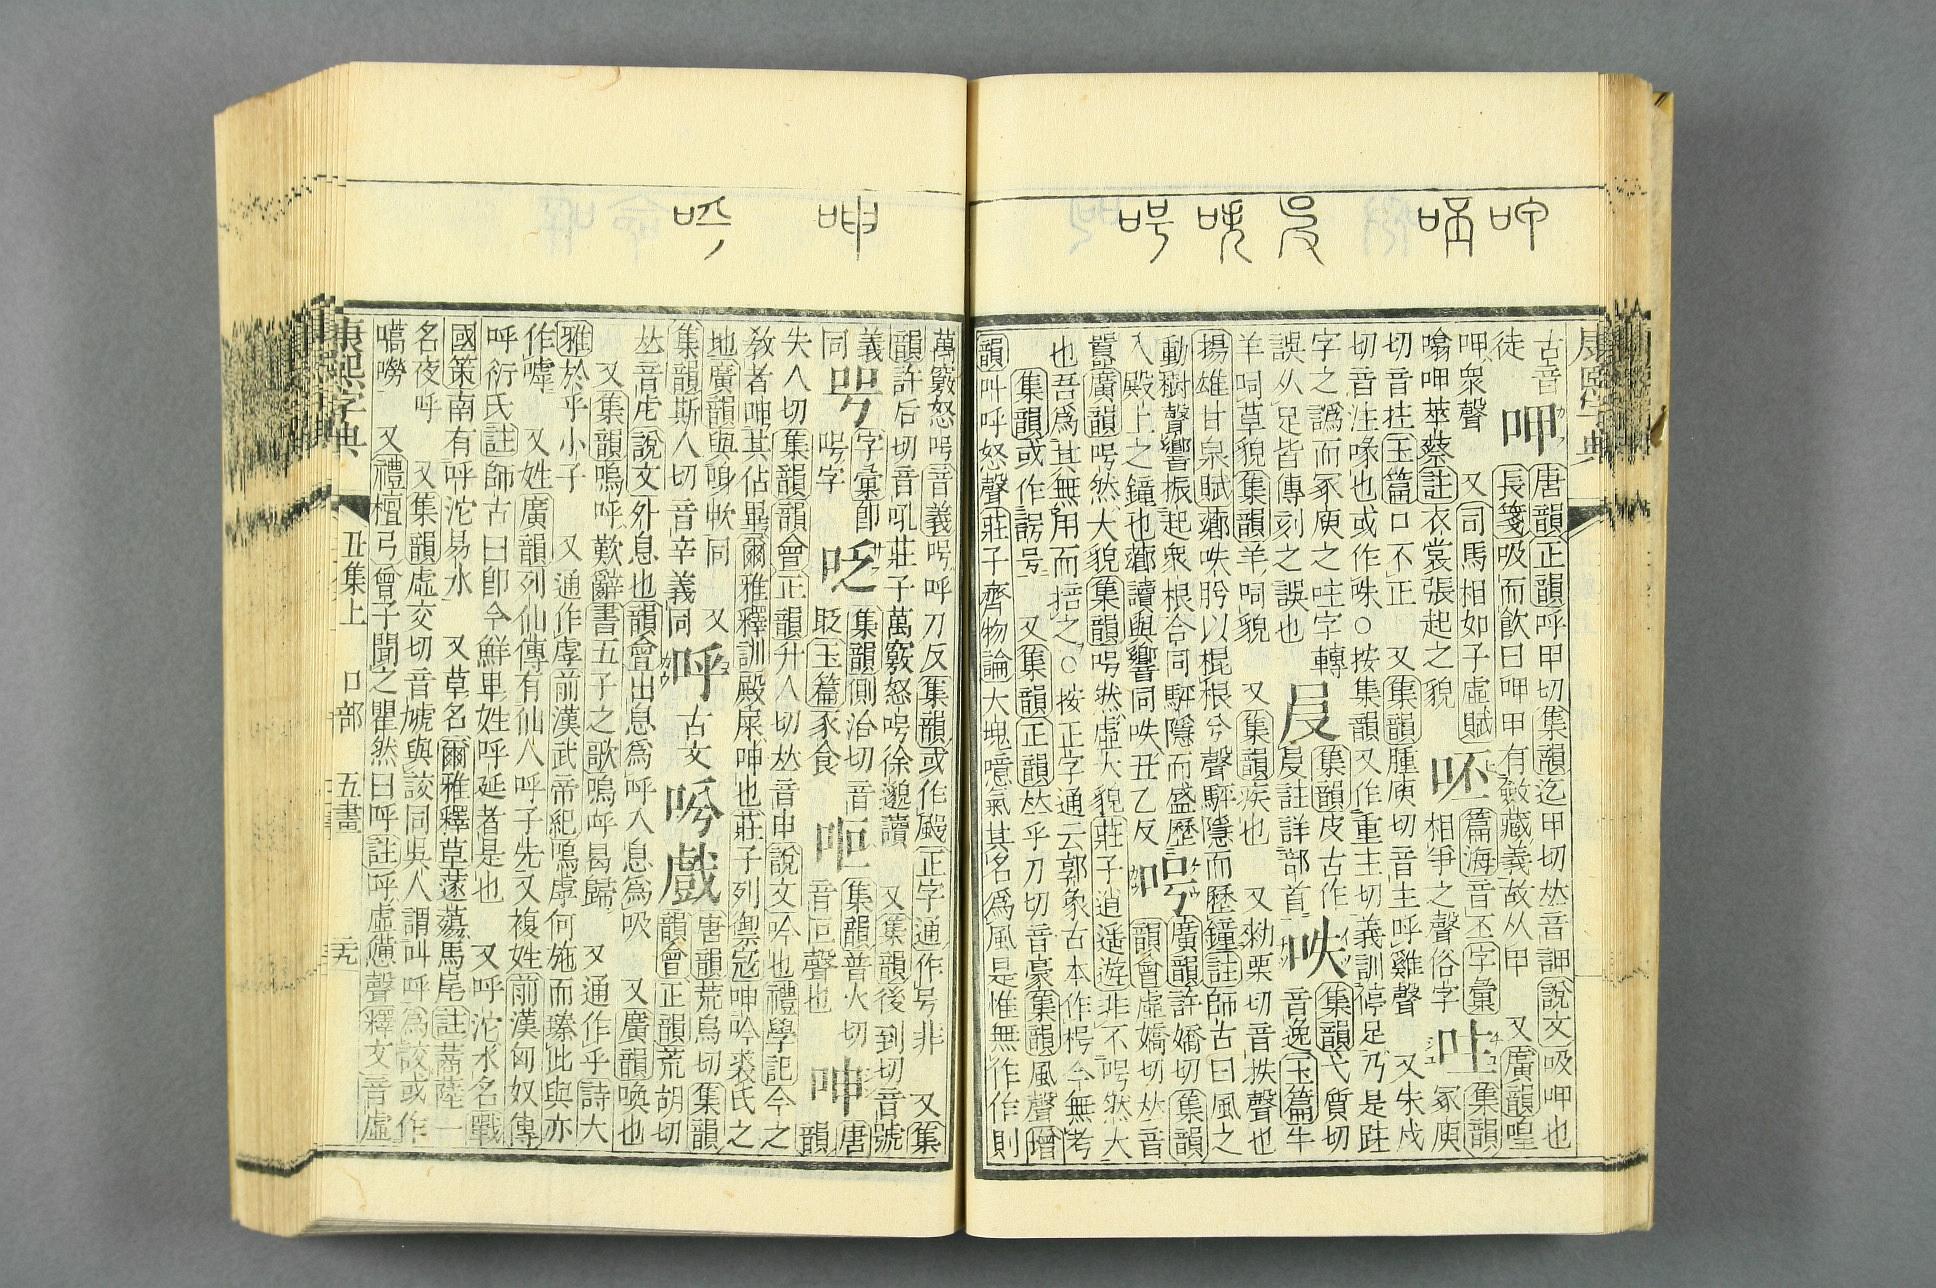 呷
𠰍
𠬝
呹
呺
呻
吟
康熙字典
古音 呷 唐韻正韻呼甲切集韻迄甲切𠀤音𧧸說文吸呷也
徒 長箋吸而飮曰呷甲有斂藏義故从甲 又廣韻喤
呷衆聲 又司馬相如子虛賦 呸 篇海音丕字彙 𠰍 集韻
噏呷萃蔡註衣裳張起之貌 相爭之聲俗字 冢庾
切音拄玉篇口不正 又集韻腫庾切音主呼雞聲 又朱戍
切音注喙也或作咮○按集韻又作重主切義訓停足乃是跓
字之譌而冢庾之𠰍字轉 集韻皮古作 呹 集韻弋質切
誤从足皆傳刻之誤也 註詳部首 音逸玉篇牛
羊呞草貌集韻羊呞貌 又集韻疾也 又勑栗切音抶聲也
揚雄甘泉賦薌呹肸以棍根兮聲駍隱而歷鐘註師古曰風之
動樹聲響振起衆根合同駍隱而盛歷 呺 廣韻許嬌切集韻
入殿上之鐘也薌讀與響同呹丑乙反 韻會虛嬌切𠀤音
囂廣韻呺然大貌集韻呺然虛大貌莊子逍遙遊非不呺然大
也吾爲其無用而掊之○按正字通云郭象古本作枵今無考
集韻或作号 又集韻正韻𠀤乎刀切音豪集韻風聲增
韻叫呼怒聲莊子齊物論大塊噫氣其名爲風是惟無作作則
萬竅怒呺音義呺呼刀反集韻或作正字通作号非 又集
韻許后切音吼莊子萬竅怒呺徐邈讀 又集韻後到切音號
義同 字彙卽 㕹 集韻側洽切音 又集韻普火切 呻 唐
同 呺字 眨玉篇豕食 音叵聲也 韻
失人切集韻韻會正韻升人切𠀤音申說文吟也禮學記今之
敎者呻其佔畢爾雅釋訓殿屎呻也莊子列禦寇呻吟裘氏之
地廣韻與訷㰮同 又 呼 古文 戲 唐韻荒烏切集韻
集韻斯人切音辛義同 韻會正韻荒胡切
𠀤音虍說文外息也韻會出息爲呼入息爲吸 又廣韻喚也
又集韻嗚呼歎辭書五子之歌嗚呼曷歸 又通作乎詩大
雅於乎小子 又通作虖前漢武帝紀嗚虖何施而臻此與亦
作嘑 又姓廣韻列仙傳有仙人呼子先又複姓前漢匈奴傳
呼衍氏註師古曰卽今鮮卑姓呼延者是也 又呼沱水名戰
國策南有呼沱易水 又草名爾雅釋草蓫薚馬尾註蔏蓫一
名夜呼 又集韻虛交切音虓與詨同吳人謂叫呼爲詨或作
嚆嘮 又禮檀弓曾子聞之瞿然曰呼註呼虛憊聲釋文音虛
康熙字典
丑集上 口部 五畫